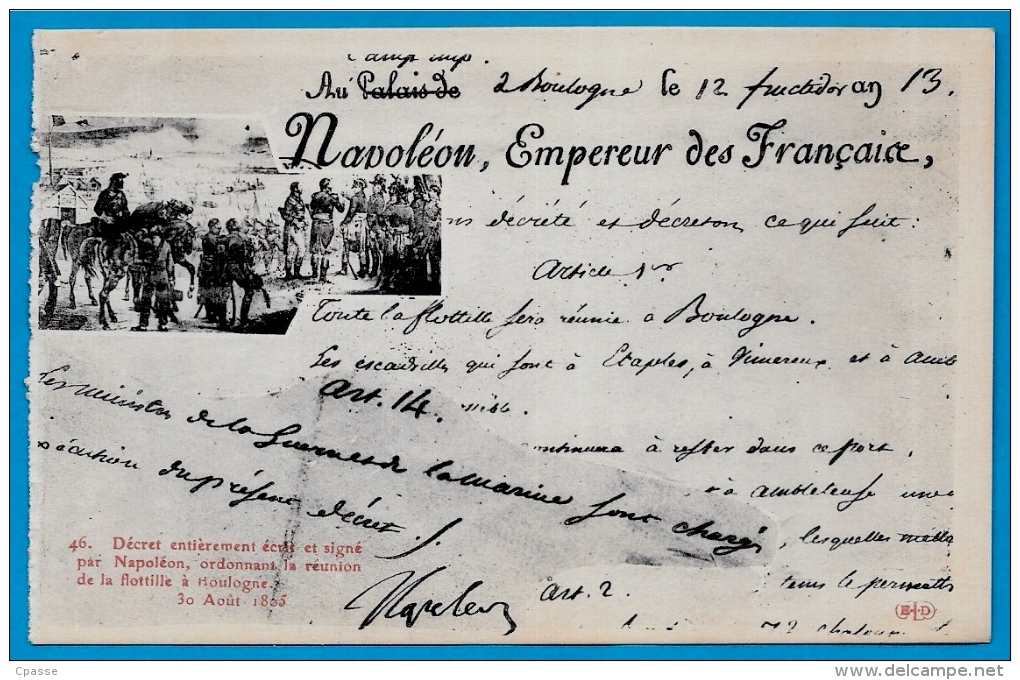 Camp imp.
Au Palais de à Boulogne le 12 fructidor an 13.
Napoléon, Empereur des Français,
ons décrété et décretons ce qui suit :
Article 1er
Toute la flottille sera réunie à Boulogne.
Les escadrilles qui sont à Etaples, à Vimereux et à Amble
Art. 14.
Les ministres de la Guerre et de la Marine sont chargés
exécution du présent décret.
ontinuera à rester dans ce port,
à Ambleteuse une
, lesquelles mettr
tems le permettr
46. Décret entièrement écrit et signé
par Napoléon, ordonnant la réunion
de la flottille à Boulogne.
30 Août 1805
Napoleon
Art. 2
72 chaloup
E.L.D
Cpasse
www.delcampe.net